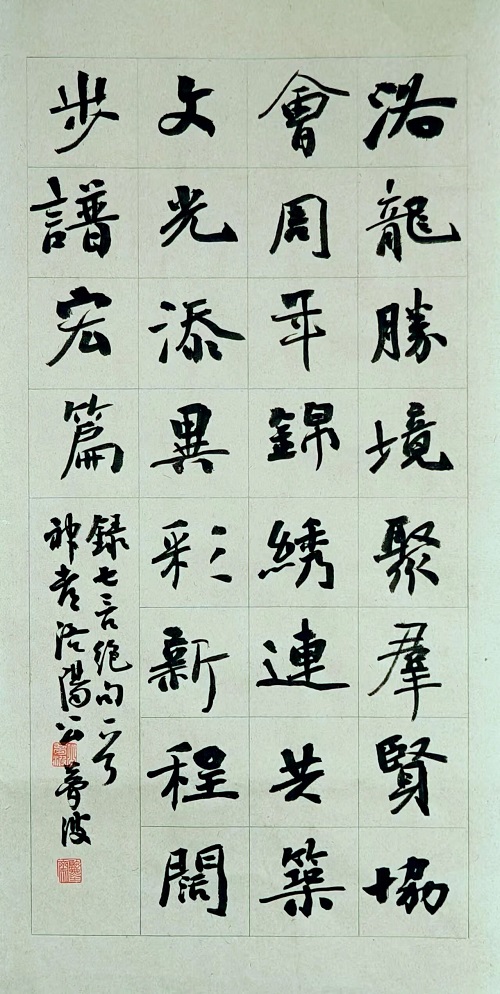 洛龍勝境聚羣賢協
會周年錦綉連共築
文光添異彩新程闊
步譜宏篇
録七言絕句一首
神都洛陽公夢波